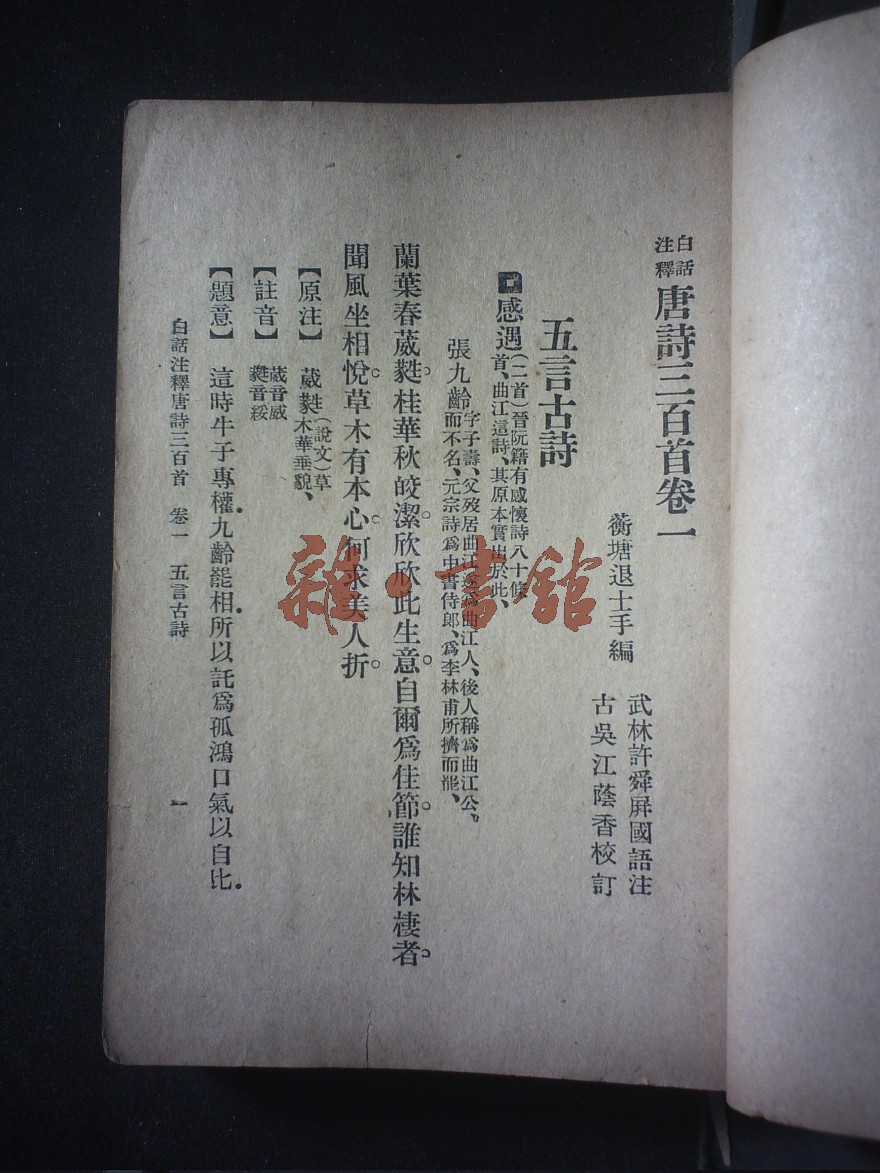 白話
注釋
唐詩三百首卷一
蘅塘退士手編
武林許舜屏國語注
古吳江蔭香校訂
五言古詩
感遇(二首)晉阮籍有感懷詩八十餘
首、曲江這詩、其原本實出於此、
張九齡字子壽、父歿居曲江、遂為曲江人、後人稱為曲江公、
而不名、元宗詩為中書侍郎、為李林甫所擠而罷、
蘭葉春葳蕤。桂華秋皎潔。欣欣此生意。自爾為佳節。誰知林棲者。
聞風坐相悅。草木有本心。何求美人折。
【原注】 葳蕤(說文)草
木華垂貌、
【註音】 葳音威
蕤音綏
【題意】 這時牛子專權、九齡罷相所以託為孤鴻口氣以自比
白話注釋唐詩三百首 卷一 五言古詩 一
雜·書館